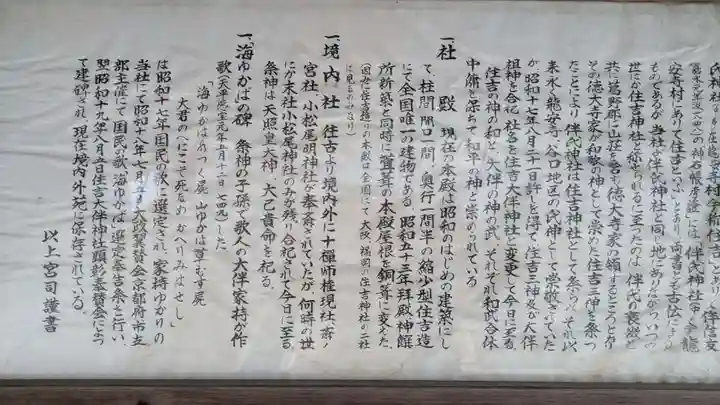 安井村にありて住吉といふ」とあり、両書とも古伝によった
ものであるが当社が伴氏神社と同じ地にありながらいつの
世にか住吉神社と称られるに至ったのは、伴氏の衰微と
共に葛野郡に山荘を営む徳大寺家の領するところとなり
その徳大寺家が和歌の神として崇めた住吉三神を祭っ
たことにより伴氏神社は住吉神社として祭られ、それ以
来永く龍安寺、谷口地区の氏神として崇敬されていた
が昭和十七年八月三十一日許しを得て住吉三神及び大伴
祖神を合祀、社名を住吉大伴神社と変更して今日に至る。
住吉の神の和と、大伴の神の武、それぞれ和武合体
中庸を保ちて和平の神と崇められている
一、社殿 現在の本殿は昭和のはじめの建築にし
て、柱間、間口一間、奥行一間半の縮少型住吉造
にて全国唯一の建物である。昭和五十三年拝殿神饌
所新築と同時に檜葺の本殿屋根を銅葺に変えた。
(因みに住吉造りの本殿は全国にて大阪、福岡の住吉神社の二社
に見るのみなり)
一、境内社 住吉より境内外に十禅師権現社、斎ノ
宮社、小松尾明神社が奉斎されていたが、何時の世
にか末社小松尾神社のみが残り合祀されて今日に至る。
祭神は天照皇大神、大己貴命を祀る。
一、海ゆかばの碑 祭神の子孫で歌人の大伴家持が作
歌(天平感宝元年五月十二日七四九)した。
「海ゆかばみつく屍 山ゆかば草むす屍
大君のへにこそ死なめ かへりみはせじ」
は昭和十七年国民の歌に選定され、家持ゆかりの
当社にて昭和十八年七月五日大政翼賛会京都府市支
部主催にて国民の歌「海ゆかば」選定奉告祭を行い、
翌昭和十九年八月五日住吉大伴神社顕彰奉賛会によっ
て建碑され、現在境内外苑に保存されている。
以上宮司謹書